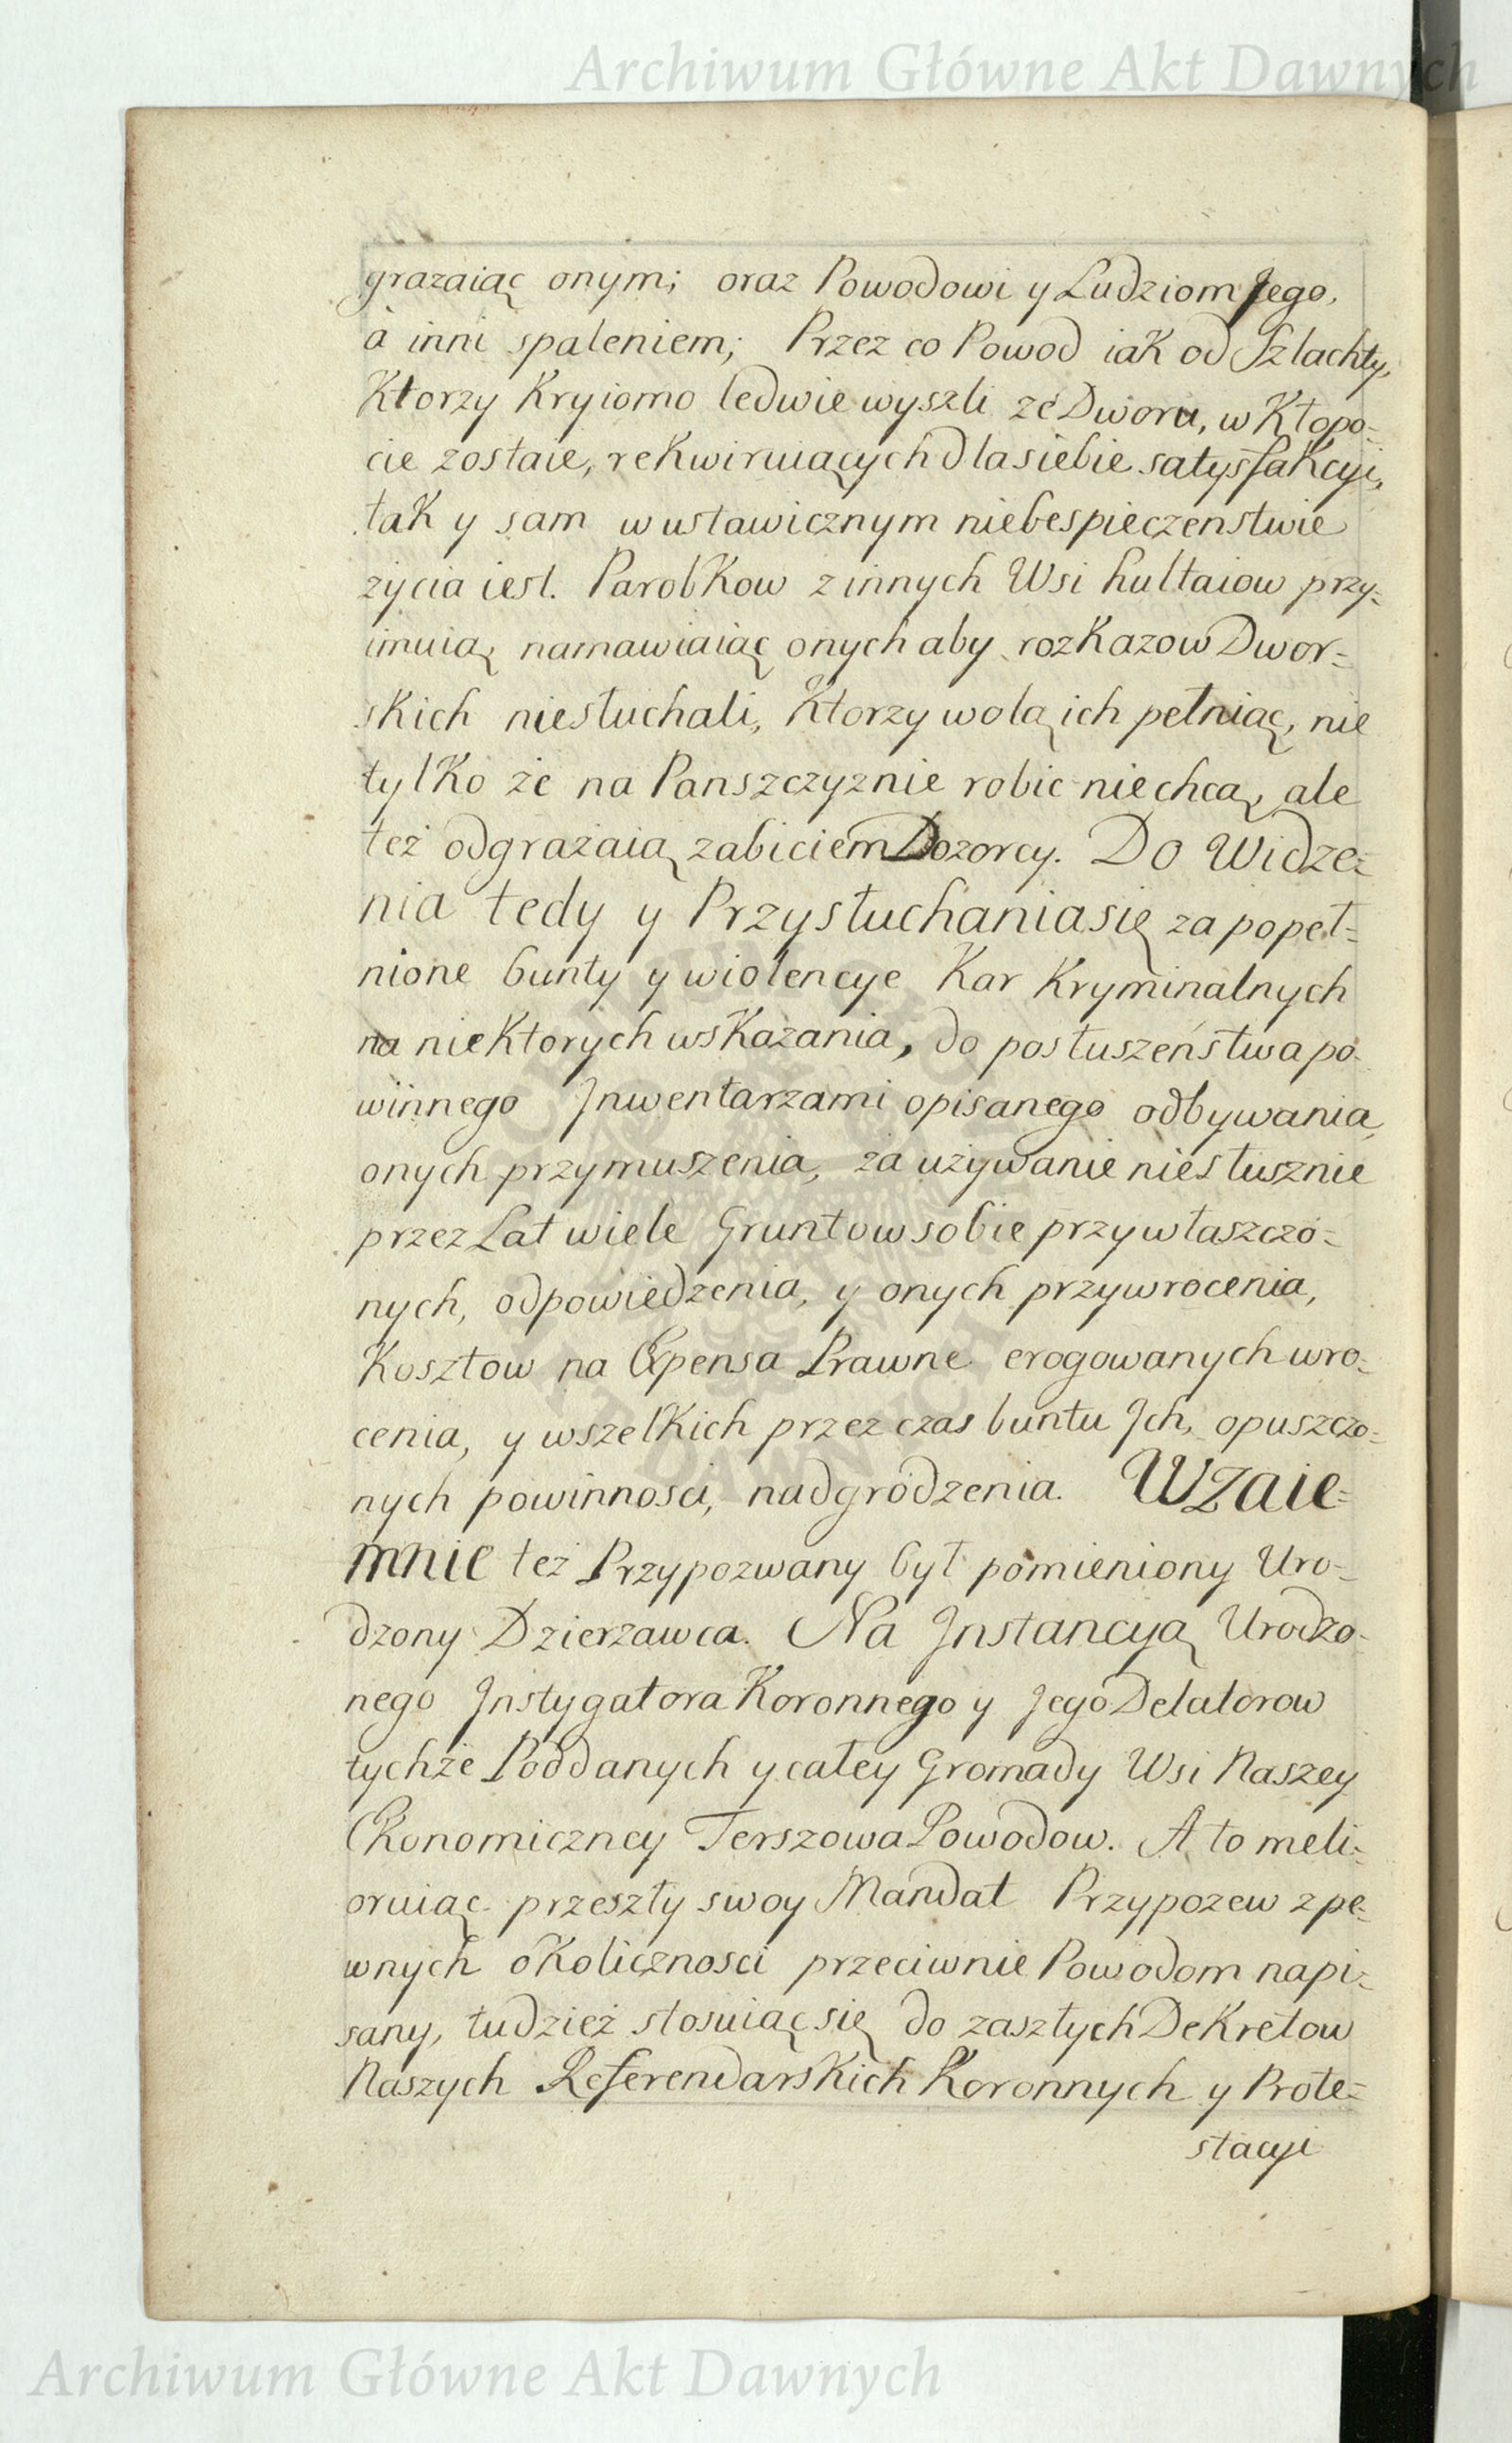 Archiwum Główne Akt Dawnych
grazaiąc onym; oraz Powodowi y Ludziom Jego,
á inni spaleniem; Przez co Powod iak od Szlachty,
Ktorzy Kryiomo ledwie wyszli ze Dworu, w Kłopo=
cie zostaie, rekwiruiących dla siebie satysfakcyi,
tak y sam w ustawicznym niebespieczenstwie
zycia iest. Parobkow z innych Wsi hultaiow przy=
imuią, namawiaiąc onych aby rozkazow Dwor=
skich niesłuchali, Ktorzy wolą ich pełniąc, nie
tylko że na Panszczyznie robic niechcą, ale
też odgrażaią zabiciem Dozorcy. Do Widze=
nia tedy y Przysłuchania się za popeł=
nione bunty y wiolencye Kar Kryminalnych
na niektorych wskazania, do posłuszeństwa po
winnego Inwentarzami opisanego odbywania,
onych przymuszenia, za używanie niesłusznie
przez Lat wiele Gruntow sobie przywłaszczo=
nych, odpowiedzenia, y onych przywrocenia,
Kosztow na Expensa Prawne erogowanych wro=
cenia, y wszelkich przez czas buntu Ich, opuszczo=
nych powinnosci, nadgrodzenia. Wzaie=
mnie też Przypozwany był pomieniony Uro=
dzony Dzierzawca. Na Instancyą Urodzo=
nego Instygatora Koronnego y Jego Delatorow
tychże Poddanych y całey Gromady Wsi Naszey
Ekonomiczney Terszowa Powodow. A to meli=
oruiąc przeszły swoy Mandat Przypozew z pe=
wnych okolicznosci przeciwnie Powodom napi=
sany, tudzież stosuiąc się do zaszłych Dekretow
Naszych Referendarskich Koronnych y Prote=
stacyi
Archiwum Główne Akt Dawnych